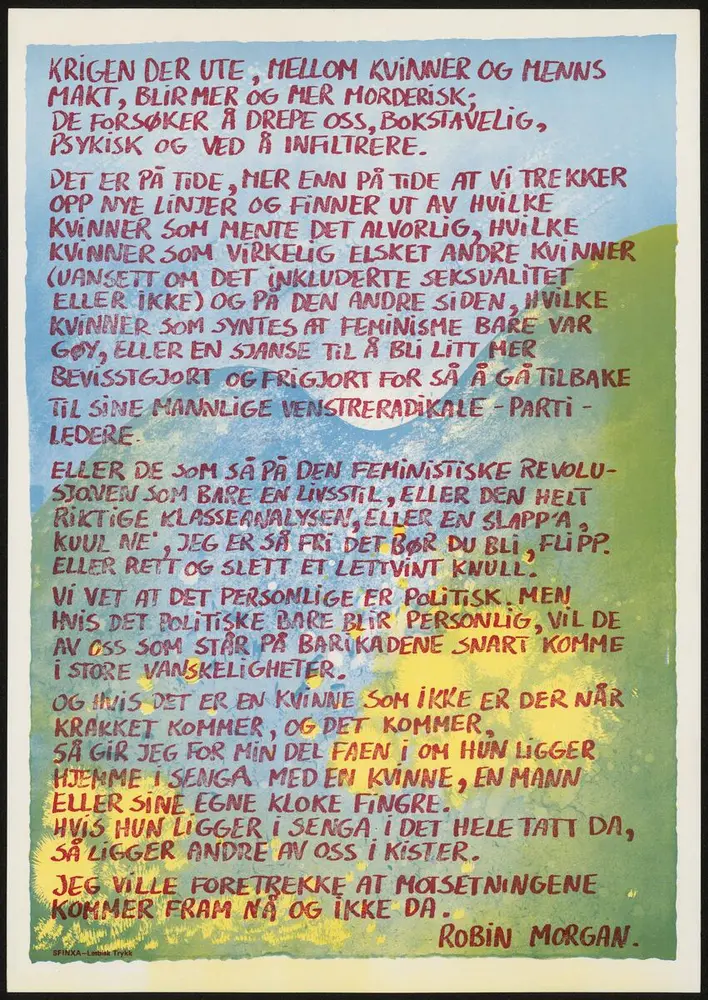 KRIGEN DER UTE, MELLOM KVINNER OG MENNS
MAKT, BLIR MER OG MER MORDERISK;
DE FORSØKER Å DREPE OSS, BOKSTAVELIG,
PSYKISK OG VED Å INFILTRERE.
DET ER PÅ TIDE, MER ENN PÅ TIDE AT VI TREKKER
OPP NYE LINJER OG FINNER UT AV HVILKE
KVINNER SOM MENTE DET ALVORLIG, HVILKE
KVINNER SOM VIRKELIG ELSKET ANDRE KVINNER
(UANSETT OM DET INKLUDERTE SEKSUALITET
ELLER IKKE) OG PÅ DEN ANDRE SIDEN, HVILKE
KVINNER SOM SYNTES AT FEMINISME BARE VAR
GØY, ELLER EN SJANSE TIL Å BLI LITT MER
BEVISSTGJORT OG FRIGJORT FOR SÅ Å GÅ TILBAKE
TIL SINE MANNLIGE VENSTRERADIKALE - PARTI -
LEDERE.
ELLER DE SOM SÅ PÅ DEN FEMINISTISKE REVOLU-
SJONEN SOM BARE EN LIVSSTIL, ELLER DEN HELT
RIKTIGE KLASSEANALYSEN, ELLER EN SLAPP'A,
KUUL NE', JEG ER SÅ FRI DET BØR DU BLI, FLIPP.
ELLER RETT OG SLETT ET LETTVINT KNULL.
VI VET AT DET PERSONLIGE ER POLITISK. MEN
HVIS DET POLITISKE BARE BLIR PERSONLIG, VIL DE
AV OSS SOM STÅR PÅ BARIKADENE SNART KOMME
I STORE VANSKELIGHETER.
OG HVIS DET ER EN KVINNE SOM IKKE ER DER NÅR
KRAKKET KOMMER, OG DET KOMMER,
SÅ GIR JEG FOR MIN DEL FAEN I OM HUN LIGGER
HJEMME I SENGA MED EN KVINNE, EN MANN
ELLER SINE EGNE KLOKE FINGRE.
HVIS HUN LIGGER I SENGA I DET HELE TATT DA,
SÅ LIGGER ANDRE AV OSS I KISTER.
JEG VILLE FORETREKKE AT MOTSETNINGENE
KOMMER FRAM NÅ OG IKKE DA.
ROBIN MORGAN.
SFINXA-Limbak Trykk